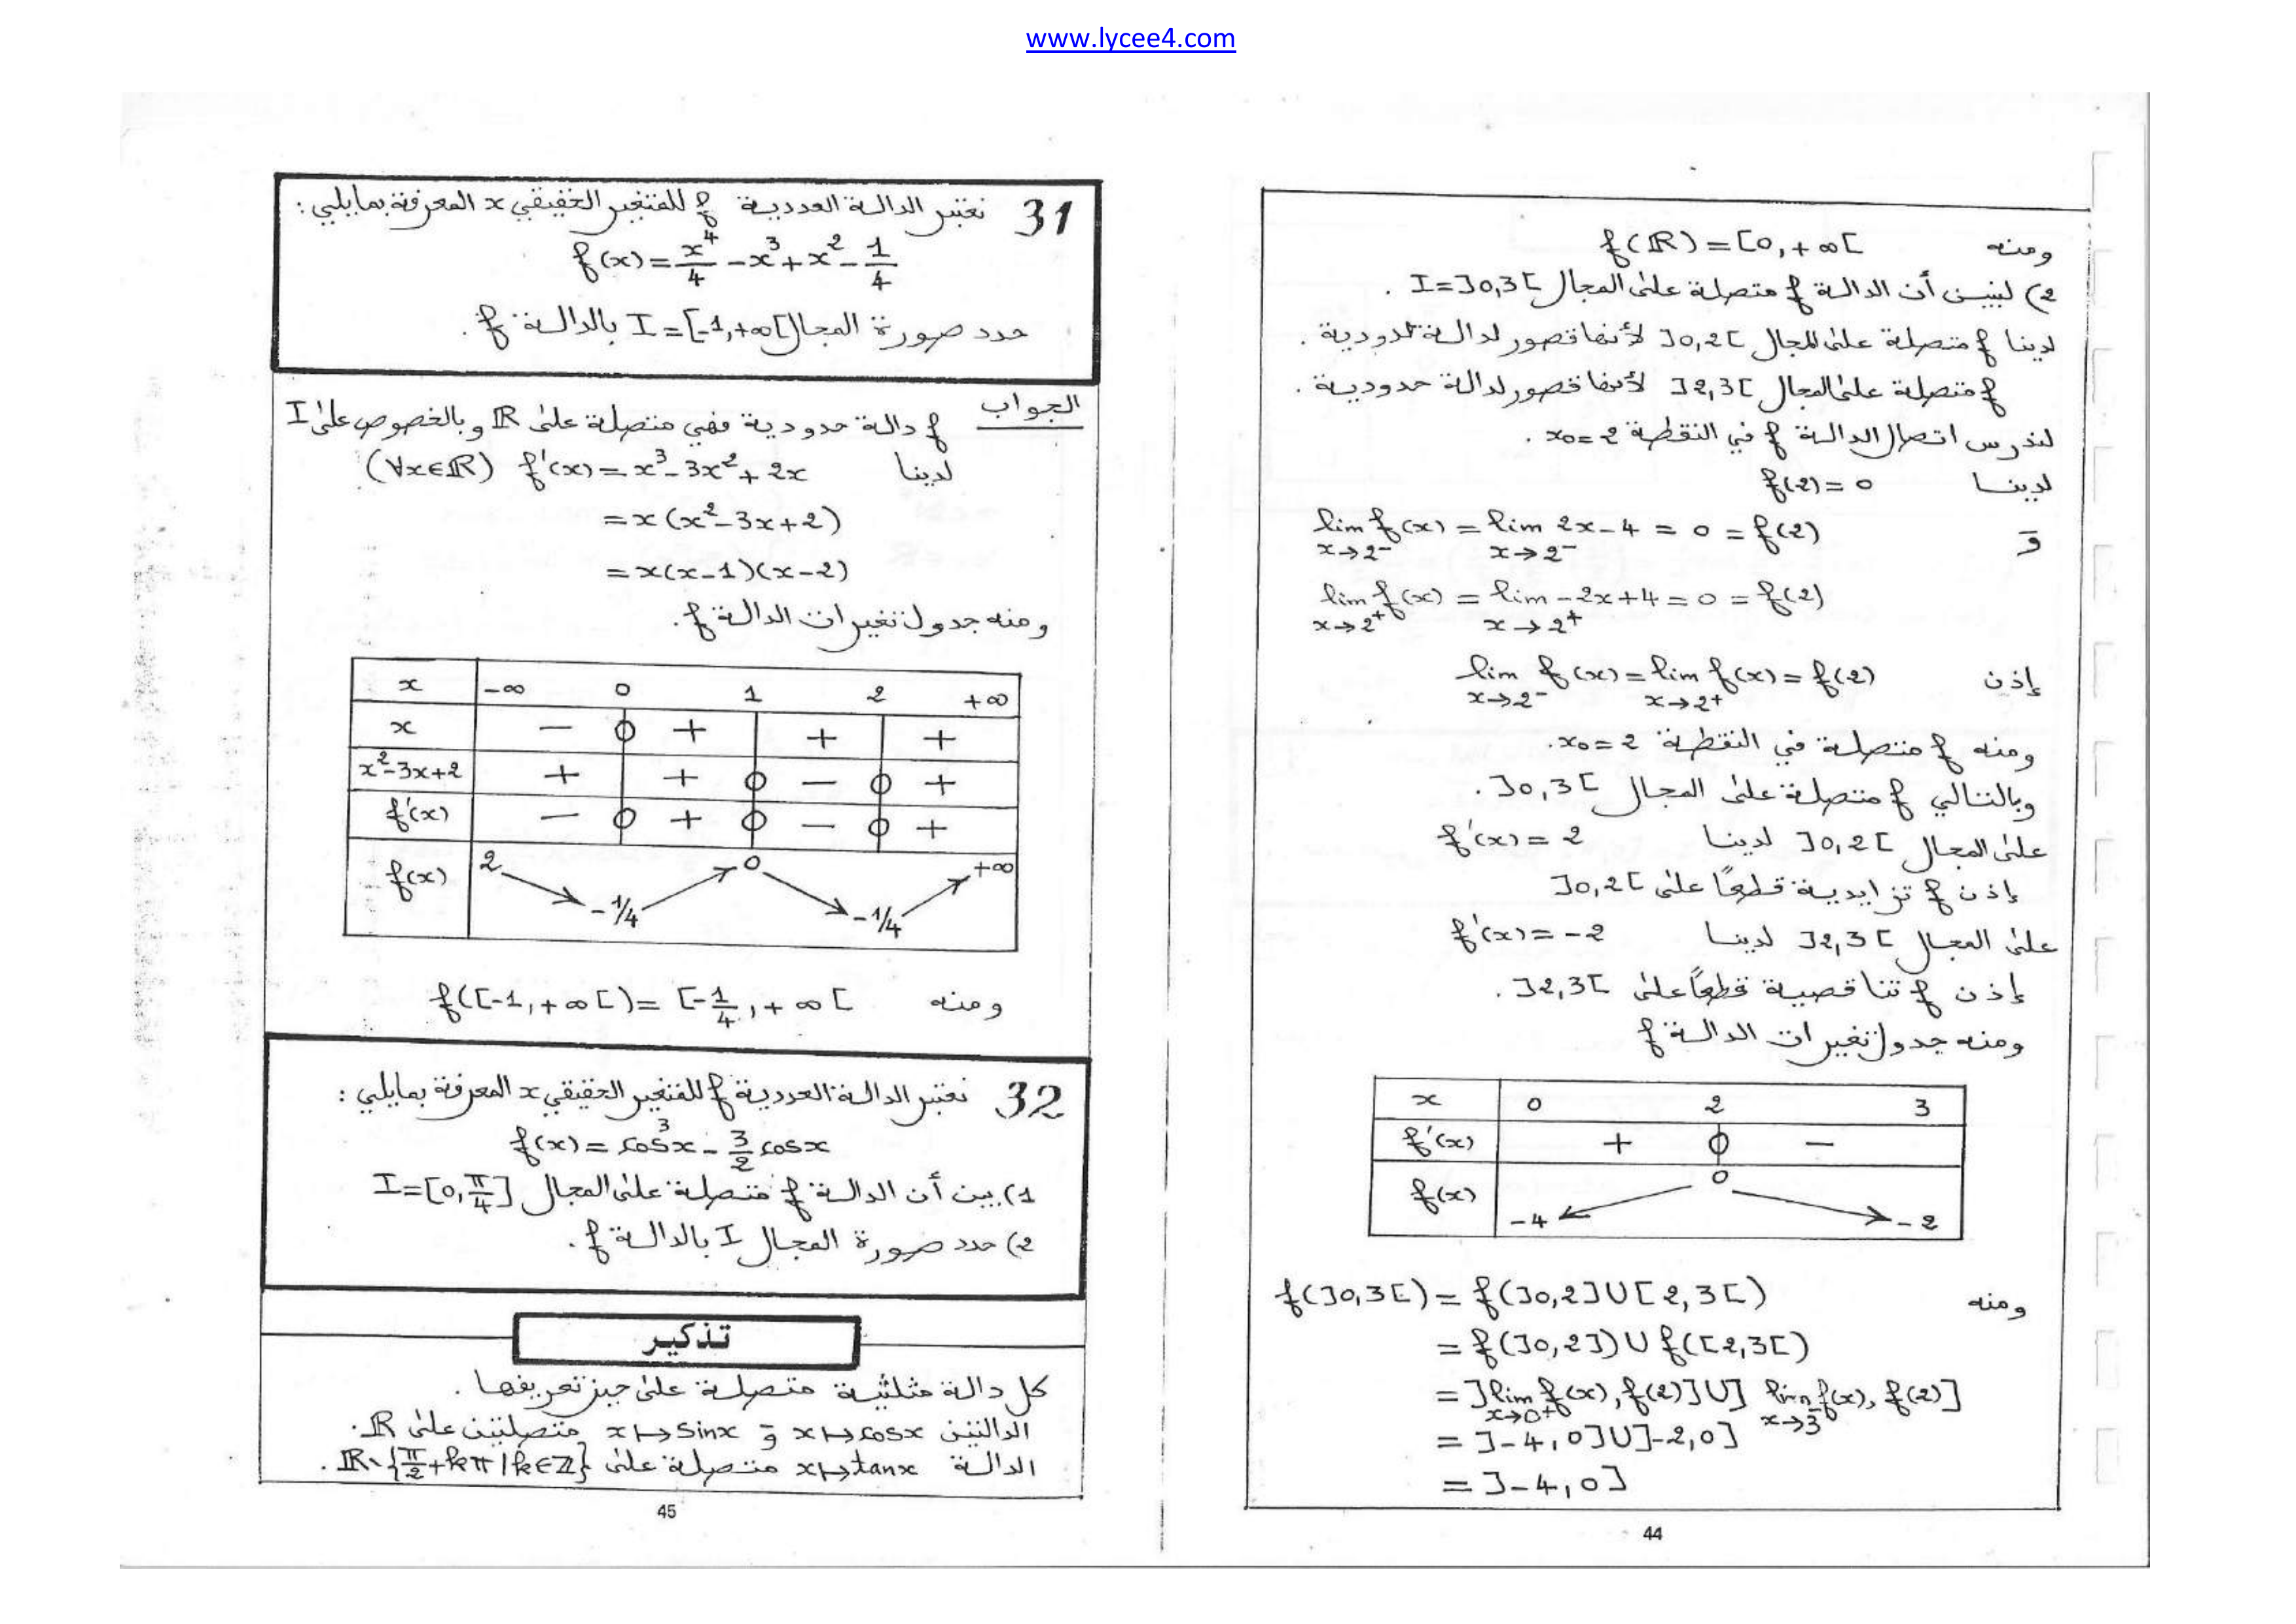 www.lycee4.com
ومنه f(ℝ) = [0, +∞[
2) لنبين أن الدالة f متصلة على المجال I = ]0,3[ .
لدينا f متصلة على المجال ]0,2[ لأنها قصور لدالة حدودية .
f متصلة على المجال ]2,3[ لأنها قصور لدالة حدودية .
لندرس اتصال الدالة f في النقطة x₀ = 2 .
لدينا f(2) = 0
و lim_{x→2⁻} f(x) = lim_{x→2⁻} 2x - 4 = 0 = f(2)
lim_{x→2⁺} f(x) = lim_{x→2⁺} -2x + 4 = 0 = f(2)
إذن lim_{x→2⁻} f(x) = lim_{x→2⁺} f(x) = f(2)
ومنه f متصلة في النقطة x₀ = 2.
وبالتالي f متصلة على المجال ]0,3[ .
على المجال ]0,2[ لدينا f'(x) = 2
إذن f تزايدية قطعًا على ]0,2[
على المجال ]2,3[ لدينا f'(x) = -2
إذن f تناقصية قطعًا على ]2,3[ .
ومنه جدول تغيرات الدالة f
x 0 2 3
f'(x) + 0 -
f(x) -4 0 -2
ومنه f(]0,3[) = f(]0,2] ∪ [2,3[)
= f(]0,2]) ∪ f([2,3[)
= ]lim_{x→0⁺} f(x), f(2)] ∪ ] lim_{x→3⁻} f(x), f(2)]
= ]-4,0] ∪ ]-2,0]
= ]-4,0]
44
31 نعتبر الدالة العددية f للمتغير الحقيقي x المعرفة بمايلي :
f(x) = x⁴/4 - x³ + x² - 1/4
حدد صورة المجال I = [-1,+∞[ بالدالة f .
الجواب f دالة حدودية فهي متصلة على ℝ وبالخصوص على I
لدينا (∀x∈ℝ) f'(x) = x³ - 3x² + 2x
= x(x² - 3x + 2)
= x(x-1)(x-2)
ومنه جدول تغيرات الدالة f.
x -∞ 0 1 2 +∞
x - 0 + + +
x²-3x+2 + + 0 - 0 +
f'(x) - 0 + 0 - 0 +
f(x) 2 -1/4 0 -1/4 +∞
ومنه f([-1,+∞[) = [-1/4, +∞[
32 نعتبر الدالة العددية f للمتغير الحقيقي x المعرفة بمايلي :
f(x) = cos³x - 3/2 cosx
1) بين أن الدالة f متصلة على المجال I = [0, π/4]
2) حدد صورة المجال I بالدالة f .
تذكير
كل دالة مثلثية متصلة على حيز تعريفها .
الدالتين x↦cosx و x↦sinx متصلتين على ℝ .
الدالة x↦tanx متصلة على ℝ∖{π/2 + kπ / k∈ℤ} .
45